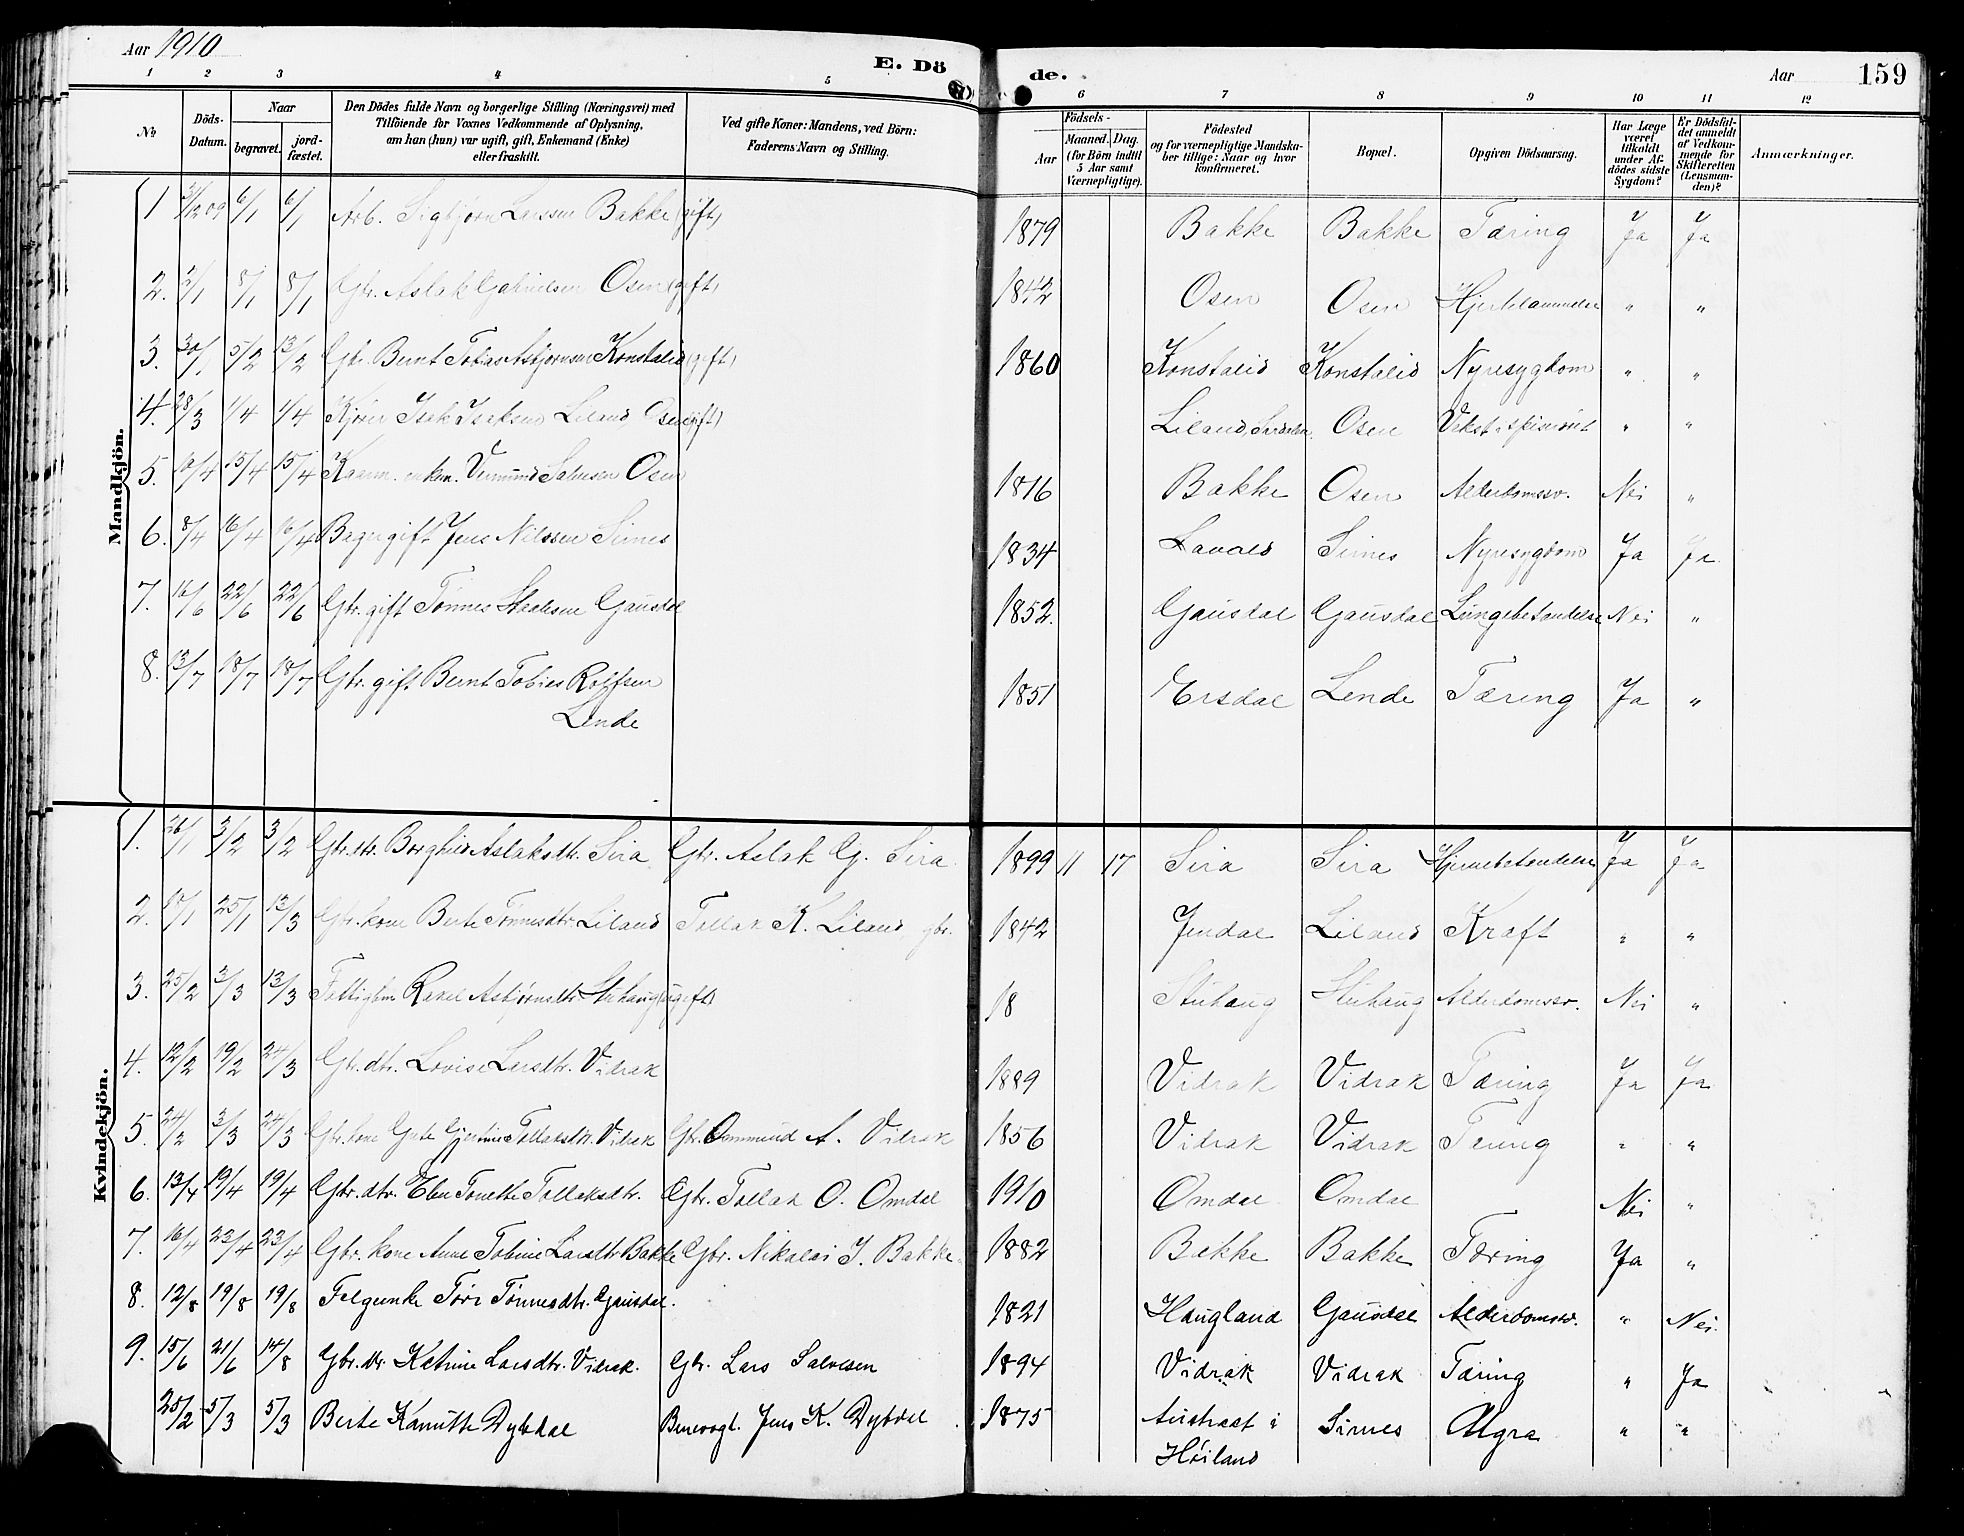 Aar 1910 E. Dö de. Aar 159
1 2 3 4 5 6 7 8 9 10 11 12
No
Döds-Datum.
Naar
begravet.
jord-fæstet.
Den Dödes fulde Navn og borgerlige Stilling (Næringsvei) med
Tilföiende for Voxnes Vedkommende af Oplysning,
om han (hun) var ugift, gift, Enkemand (Enke)
eller fraskilt.
Ved gifte Koner: Mandens, ved Börn:
Faderens Navn og Stilling.
Födsels-
Aar
Maaned. Dag.
(for Börn indtil
5 Aar samt
Værnepligtige).
Födested
og for værnepligtige Mandska-
ber tillige: Naar og hvor
konfirmeret.
Bopæl.
Opgiven Dödsaarsag.
Har Læge
været
tilkaldt
under Af-
dödes sidste
Sygdom?
Er Dödsfal-
det anmeldt
af Vedkom-
mende for
Skifteretten
(Lensman-
den)?
Anmærkninger.
Mandkjön.
1 31/12 09 6/1 6/1 Arb. Sigbjørn Larssen Bakke (gift) 1879 Bakke Bakke Tæring Ja Ja
2. 2/1 8/1 8/1 Gbr. Aslak Gabrielsen Osen (gift) 1842 Osen Osen Hjertelammelse " "
3. 30/1 5/2 13/2 Gbr. Bernt Tobias Asbjørnsen Konstalid (gift) 1860 Konstalid Konstalid Nyresygdom " "
4. 28/3 1/4 1/4 Isak Isaksen Liland Osen (gift) Liland, Osen " "
5. 10/4 15/4 15/4 Kaarm. enkem. Vermund Salvesen Osen 1816 Bakke Osen Alderdomssv. Nei "
6. 8/4 16/4 16/4 Bager gift Jens Nilssen Sirnes 1834 Lavold Sirnes Nyresygdom Ja Ja
7. 16/6 22/6 22/6 Gbr. gift Tønnes Gausdal 1852. Gausdal Gausdal Lungebetændelse Nei "
8. 13/7 18/7 18/7 Gbr. gift Bernt Tobias Rolfsen
Lende 1851 Ersdal Lende Tæring Ja "
Kvindekjön.
1. 26/1 3/2 3/2 Gbr. dtr. Borghild Aslaksdtr. Sira Gbr. Aslak G. Sira 1899 11 17 Sira Sira Hjernebetændelse Ja Ja
2. 17/1 25/1 13/3 Gbr. kone Berte Tønnesdtr Liland Tollak K. Liland gbr. 1842 Jendal Liland Kræft " "
3. 25/2 3/3 13/3 Fattiglem Rakel Asbjørnsdtr Stuhaug (ugift) 18 Stuhaug Stuhaug Alderdomssv. Nei "
4. 12/2 19/2 24/3 Gbr. dtr. Lovise Larsdtr. Vidrak 1889 Vidrak Vidrak Tæring Ja Ja
5. 24/2 3/3 24/3 Gbr. kone Gjertine Tollaksdtr. Vidrak Gbr. Ommund A. Vidrak 1856 Vidrak Vidrak Tæring " "
6. 13/4 19/4 19/4 Gbr. dtr. Tonette Tollaksdtr. Gbr. Tollak O. Omdal 1910 Omdal Omdal Nei "
7. 16/4 23/4 23/4 Gbr. kone Anne Tobine Larsdtr Bakke Gbr. Nikolai J. Bakke 1882 Bakke Bakke Tæring Ja "
8. 12/8 19/8 19/8 Tønnesdtr. Gausdal. 1821 Haugland Gausdal Alderdomssv. " Nei.
9. 15/6 21/6 14/8 Gbr. dtr. Katrine Larsdtr. Vidrak. Gbr. Lars Salvesen 1894 Vidrak Vidrak Tæring " Ja
25/2 5/3 5/3 Berte Kamitte Dybdal Jens K. Dybdal 1875 i
Høiland Sirnes " "